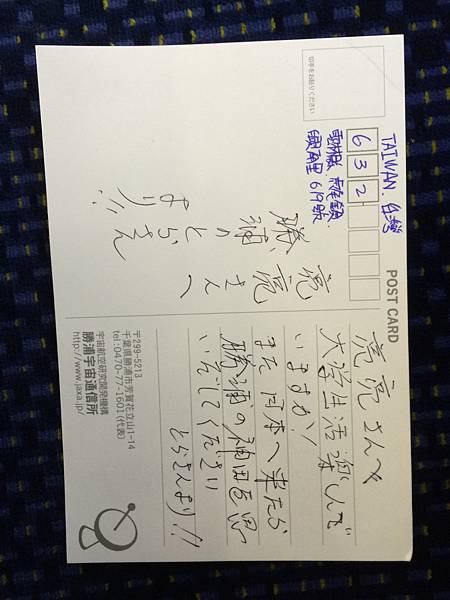 切手をお貼りください
TAIWAN. 台灣
632
雲林縣 虎尾鎮.
619號
亮亮さんへ
勝浦のとらさん
より!!
POST CARD
亮亮さんへ
大学生活楽しんで
いますか!
また日本へ来たら
勝浦の神田を思
してください
とらさんより!!
〒299-5213
千葉県勝浦市芳賀花立山1-14
tel:0470-77-1601(代表)
宇宙航空研究開発機構
勝浦宇宙通信所
http://www.jaxa.jp/